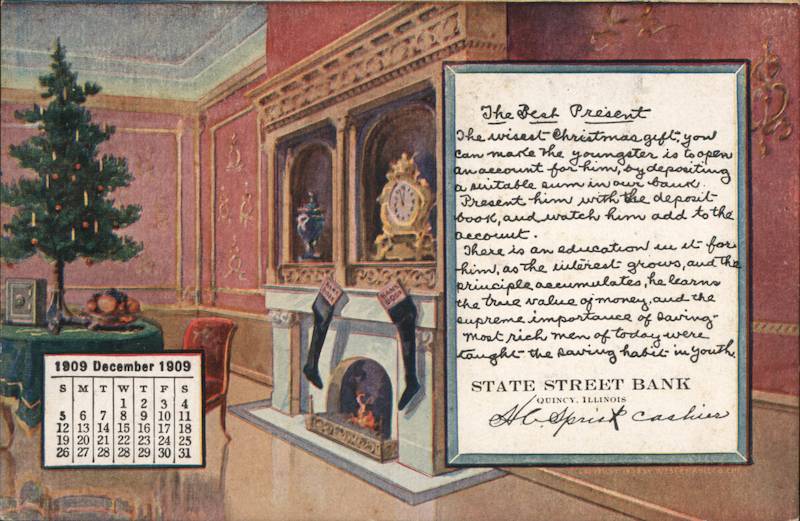 The Best Present
The wisest Christmas gift you
can make the youngster is to open
an account for him, by depositing
a suitable sum in our bank.
Present him with the deposit
book, and watch him add to the
account.
There is an education in it for
him, as the interest grows, and the
principle accumulates, he learns
the true value of money, and the
supreme importance of saving-
Most rich men of today were
taught the saving habit in youth.
STATE STREET BANK
QUINCY, ILLINOIS
cashier
BANK BOOK
1909 December 1909
S M T W T F S
1 2 3 4
5 6 7 8 9 10 11
12 13 14 15 16 17 18
19 20 21 22 23 24 25
26 27 28 29 30 31